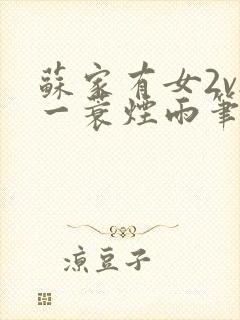 蘇家有女2v
一蓑煙雨筆
涼豆子